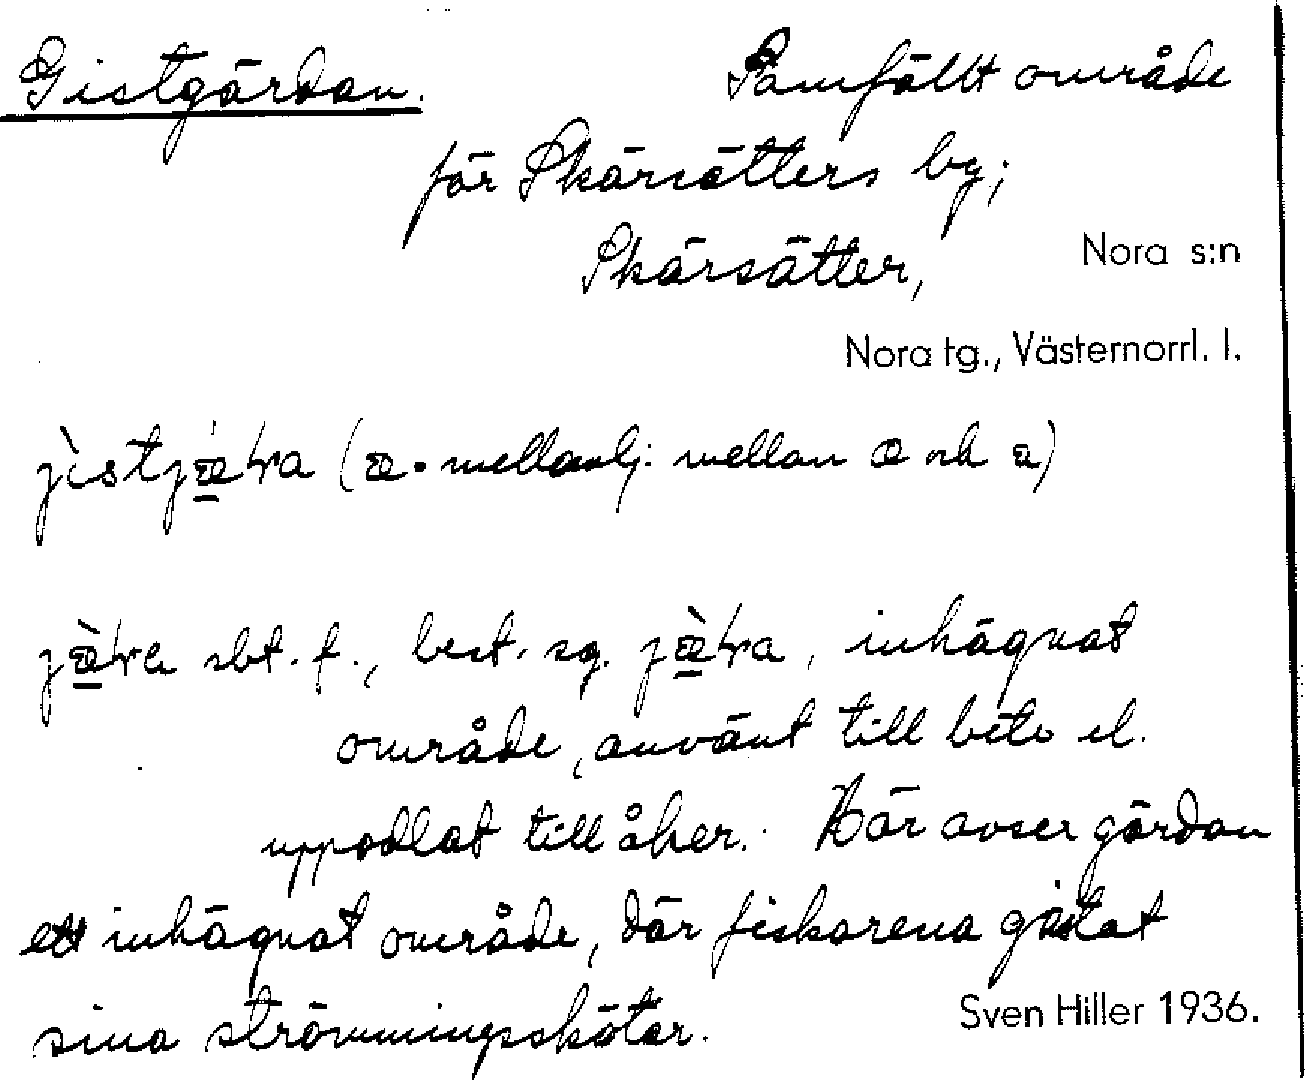 Gistgärdan. Samfällt område
för Skärsätters by;
Skärsätter, Nora s:n
Nora tg., Västernorrl. l.
(æ = mellanlj. mellan æ och a)
sbt. f., best. sg. , inhägnat
område, använt till bete el.
uppodlat till åker. Här avser gärdan
ett inhägnat område, där fiskarena gistat
sina strömmingsskötar. Sven Hiller 1936.